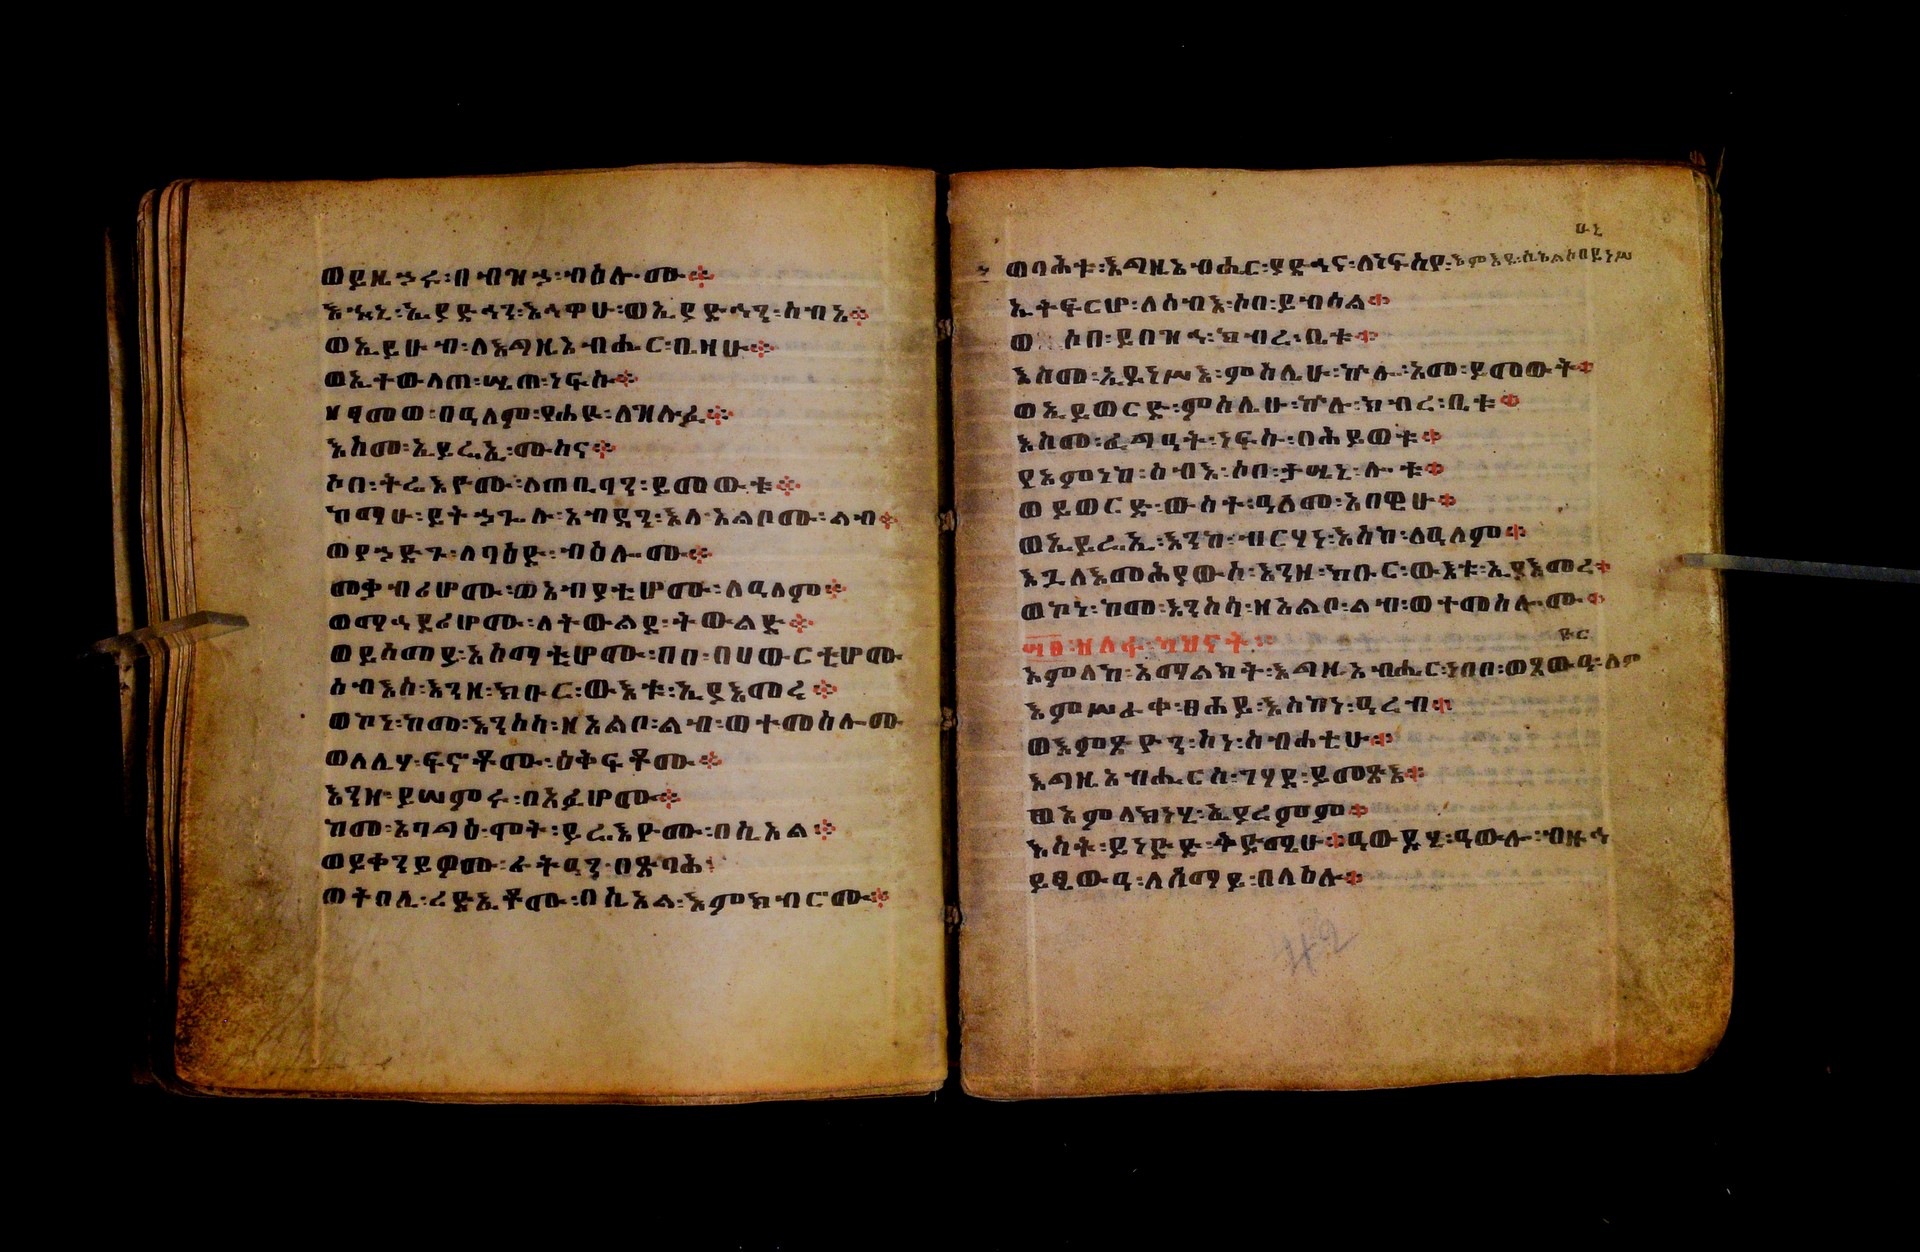 ወይዜኃሩ፡በብዝኃ፡ብዕሎሙ፨
እኁኒ፡ኢያድኅን፡እኅዋሁ፡ወኢያድኅን፡ሰብእ፨
ወኢይሁብ፡ለእግዚአብሔር፡ቤዛሁ፨
ወኢተውላጠ፡ሤጠ፡ነፍሱ፨
ዘፃመወ፡በዓለም፡የሐዩ፡ለዝሉፉ፨
እስመ፡ኢይሬኢ፡ሙስና፨
ሶበ፡ትሬእዮሙ፡ለጠቢባን፡ይመውቱ፨
ከማሁ፡ይትኃጐሉ፡አብዳን፡እለ፡አልቦሙ፡ልብ፨
ወየኃድጉ፡ለባዕድ፡ብዕሎሙ፨
መቃብሪሆሙ፡ወአብያቲሆሙ፡ለዓለም፨
ወማኅደሪሆሙ፡ለትውልደ፡ትውልድ፨
ወይሰመይ፡አስማቲሆሙ፡በበ፡በሀውርቲሆሙ
ሰብእሰ፡እንዘ፡ክቡር፡ውእቱ፡ኢያእመረ፨
ወኮነ፡ከመ፡እንስሳ፡ዘአልቦ፡ልብ፡ወተመሰሎሙ
ወለሊሃ፡ፍኖቶሙ፡ዕቅፍቶሙ፨
እንዘ፡ይሠምሩ፡በአፉሆሙ፨
ከመ፡አባግዕ፡ሞት፡ይሬእዮሙ፡በሲኦል፨
ወይቀንይዎሙ፡ራትዓን፡በጽባሕ፨
ወትበሊ፡ረድኤቶሙ፡በሲኦል፡እምክብሮሙ፨
ኡኒ
ወባሕቱ፡እግዚአብሔር፡ያድኅና፡ለነፍስየ፡እምእደ፡ሲኦል፡ሶበ፡ይነሥ
ኢትፍርሆ፡ለሰብእ፡ሶበ፡ይብዕል፨
ወሶበ፡ይበዝኅ፡ክብረ፡ቤቱ፨
እስመ፡ኢይነሥእ፡ምስሌሁ፡ኵሎ፡አመ፡ይመውት፨
ወኢይወርድ፡ምስሌሁ፡ኵሉ፡ክብረ፡ቤቱ፨
እስመ፡ፈግዓት፡ነፍሱ፡በሕይወቱ፨
የአምነከ፡ሰብእ፡ሶበ፡ታሤኒ፡ሎቱ፨
ወይወርድ፡ውስተ፡ዓለመ፡አበዊሁ፨
ወኢይሬኢ፡እንከ፡ብርሃነ፡እስከ፡ለዓለም፨
እጓለእመሕያውሰ፡እንዘ፡ክቡር፡ውእቱ፡ኢያእመረ፨
ወኮነ፡ከመ፡እንስሳ፡ዘአልቦ፡ልብ፡ወተመሰሎሙ፨
፵፱፡ዘአሳፍ፡ካህናት፡
ይር
አምላከ፡አማልክት፡እግዚአብሔር፡ነበበ፡ወጸውዓ፡ለም
እምሠራቀ፡ፀሐይ፡እስከነ፡ዓረብ፨
ወእምጽዮን፡ስነ፡ስብሐቲሁ፨
እግዚአብሔርሰ፡ገሃደ፡ይመጽእ፨
ወአምላክነሂ፡ኢያረምም፨
እሳት፡ይነድድ፡ቅድሜሁ፨ዓውዱሂ፡ዓውሎ፡ብዙኅ
ይፄውዓ፡ለሰማይ፡በላዕሉ፨